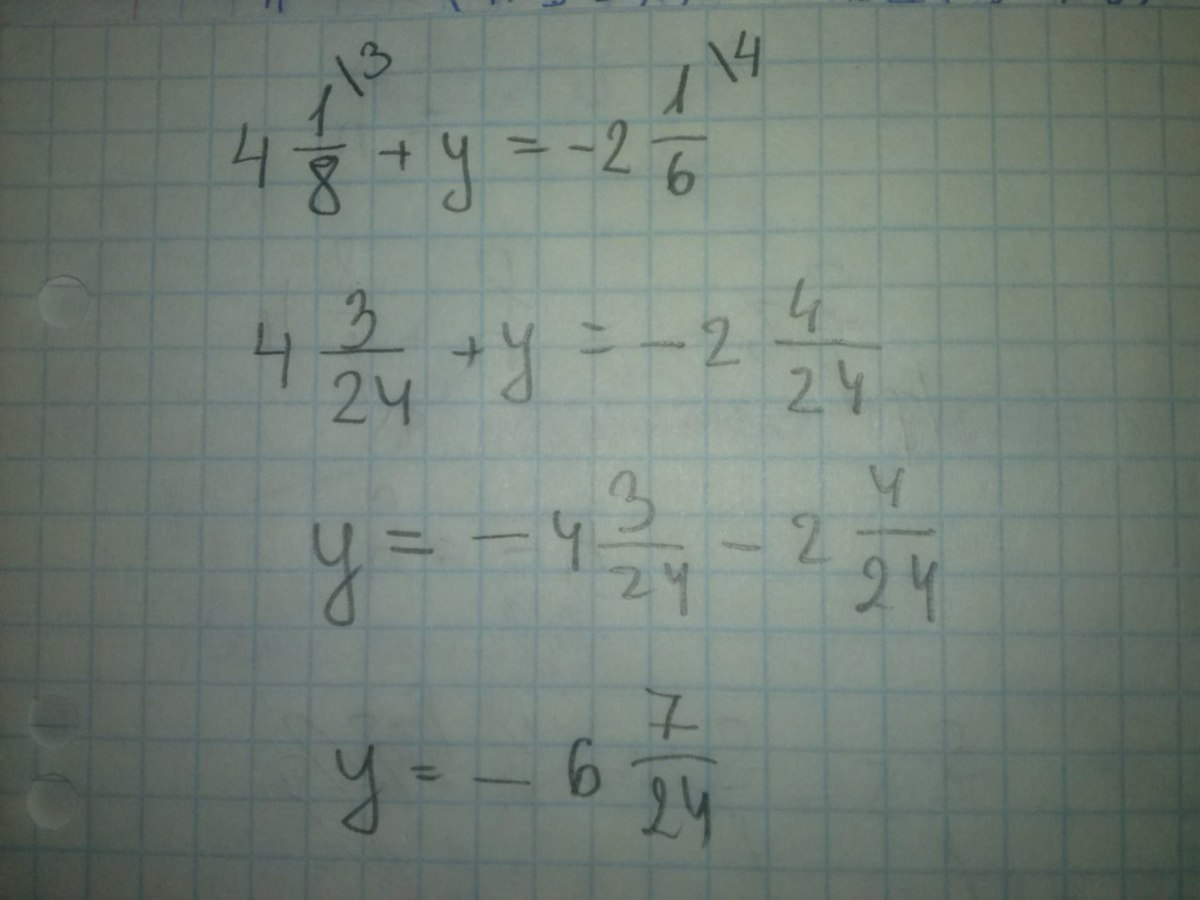 4 1/8 \3 + y = -2 1/6 \4
4 3/24 + y = -2 4/24
y = -4 3/24 - 2 4/24
y = -6 7/24